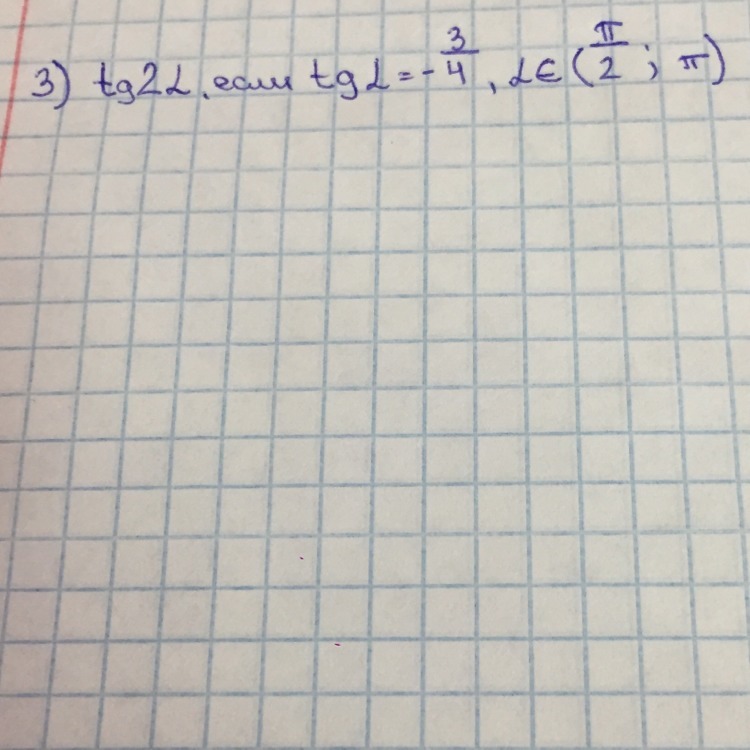 3) tg2α, если tgα = -3/4, α∈(π/2; π)